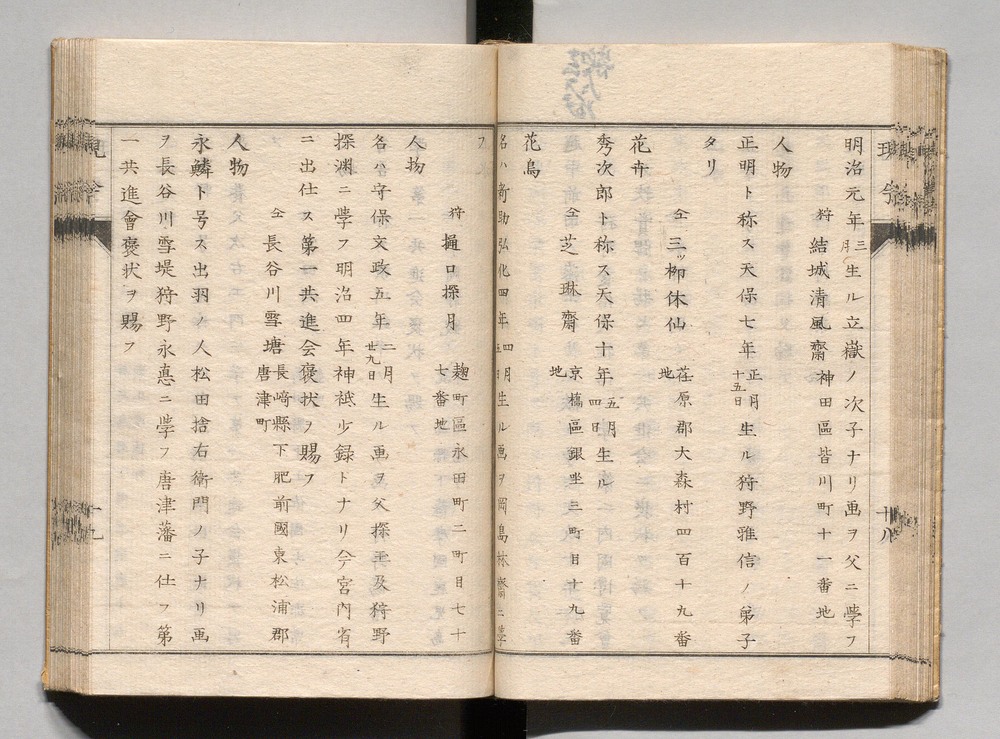 明治元年三月生ル立嶽ノ次子ナリ画ヲ父ニ學フ
狩 結城清風齋 神田區皆川町十一番地
人物
正明ト称ス天保七年正月十五日生ル狩野雅信ノ弟子
タリ
仝 三ッ栁休仙 荏原郡大森村四百十九番地
花卉
秀次郎ト称ス天保十年五月四日生ル
仝 芝琳齋 京橋區銀坐三町目十九番地
花鳥
名ハ新助弘化四年四月五日生ル画ヲ岡島林齋ニ學
フ
狩 樋口探月 麹町區永田町二町目七十七番地
人物
名ハ守保文政五年二月廿九日生ル画ヲ父探玉及狩野
探渊ニ學フ明治四年神祇少録トナリ今宮内省
ニ出仕ス第一共進会褒状ヲ賜フ
仝 長谷川雪塘 長﨑縣下肥前國東松浦郡唐津町
人物
永鱗ト号ス出羽ノ人松田捨右衛門ノ子ナリ画
ヲ長谷川雪堤狩野永悳ニ學フ唐津藩ニ仕フ第
一共進會褒状ヲ賜フ
十八
十九